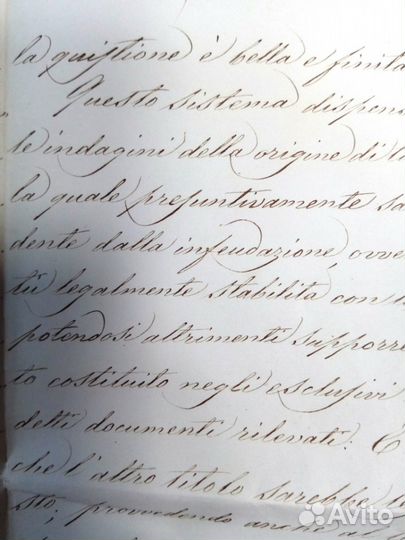 la quistione è bella e finita
Questo sistema dispens
le indagini della origine di
la quale presuntivamente sa
dente dalla infeudazione, ovve
tù legalmente stabilita con
potendosi altrimenti supporre
to costituito negli esclusivi
detti documenti rilevati. E
che l'altro titolo sarebbe
sto; provvedendo anche al
Avito